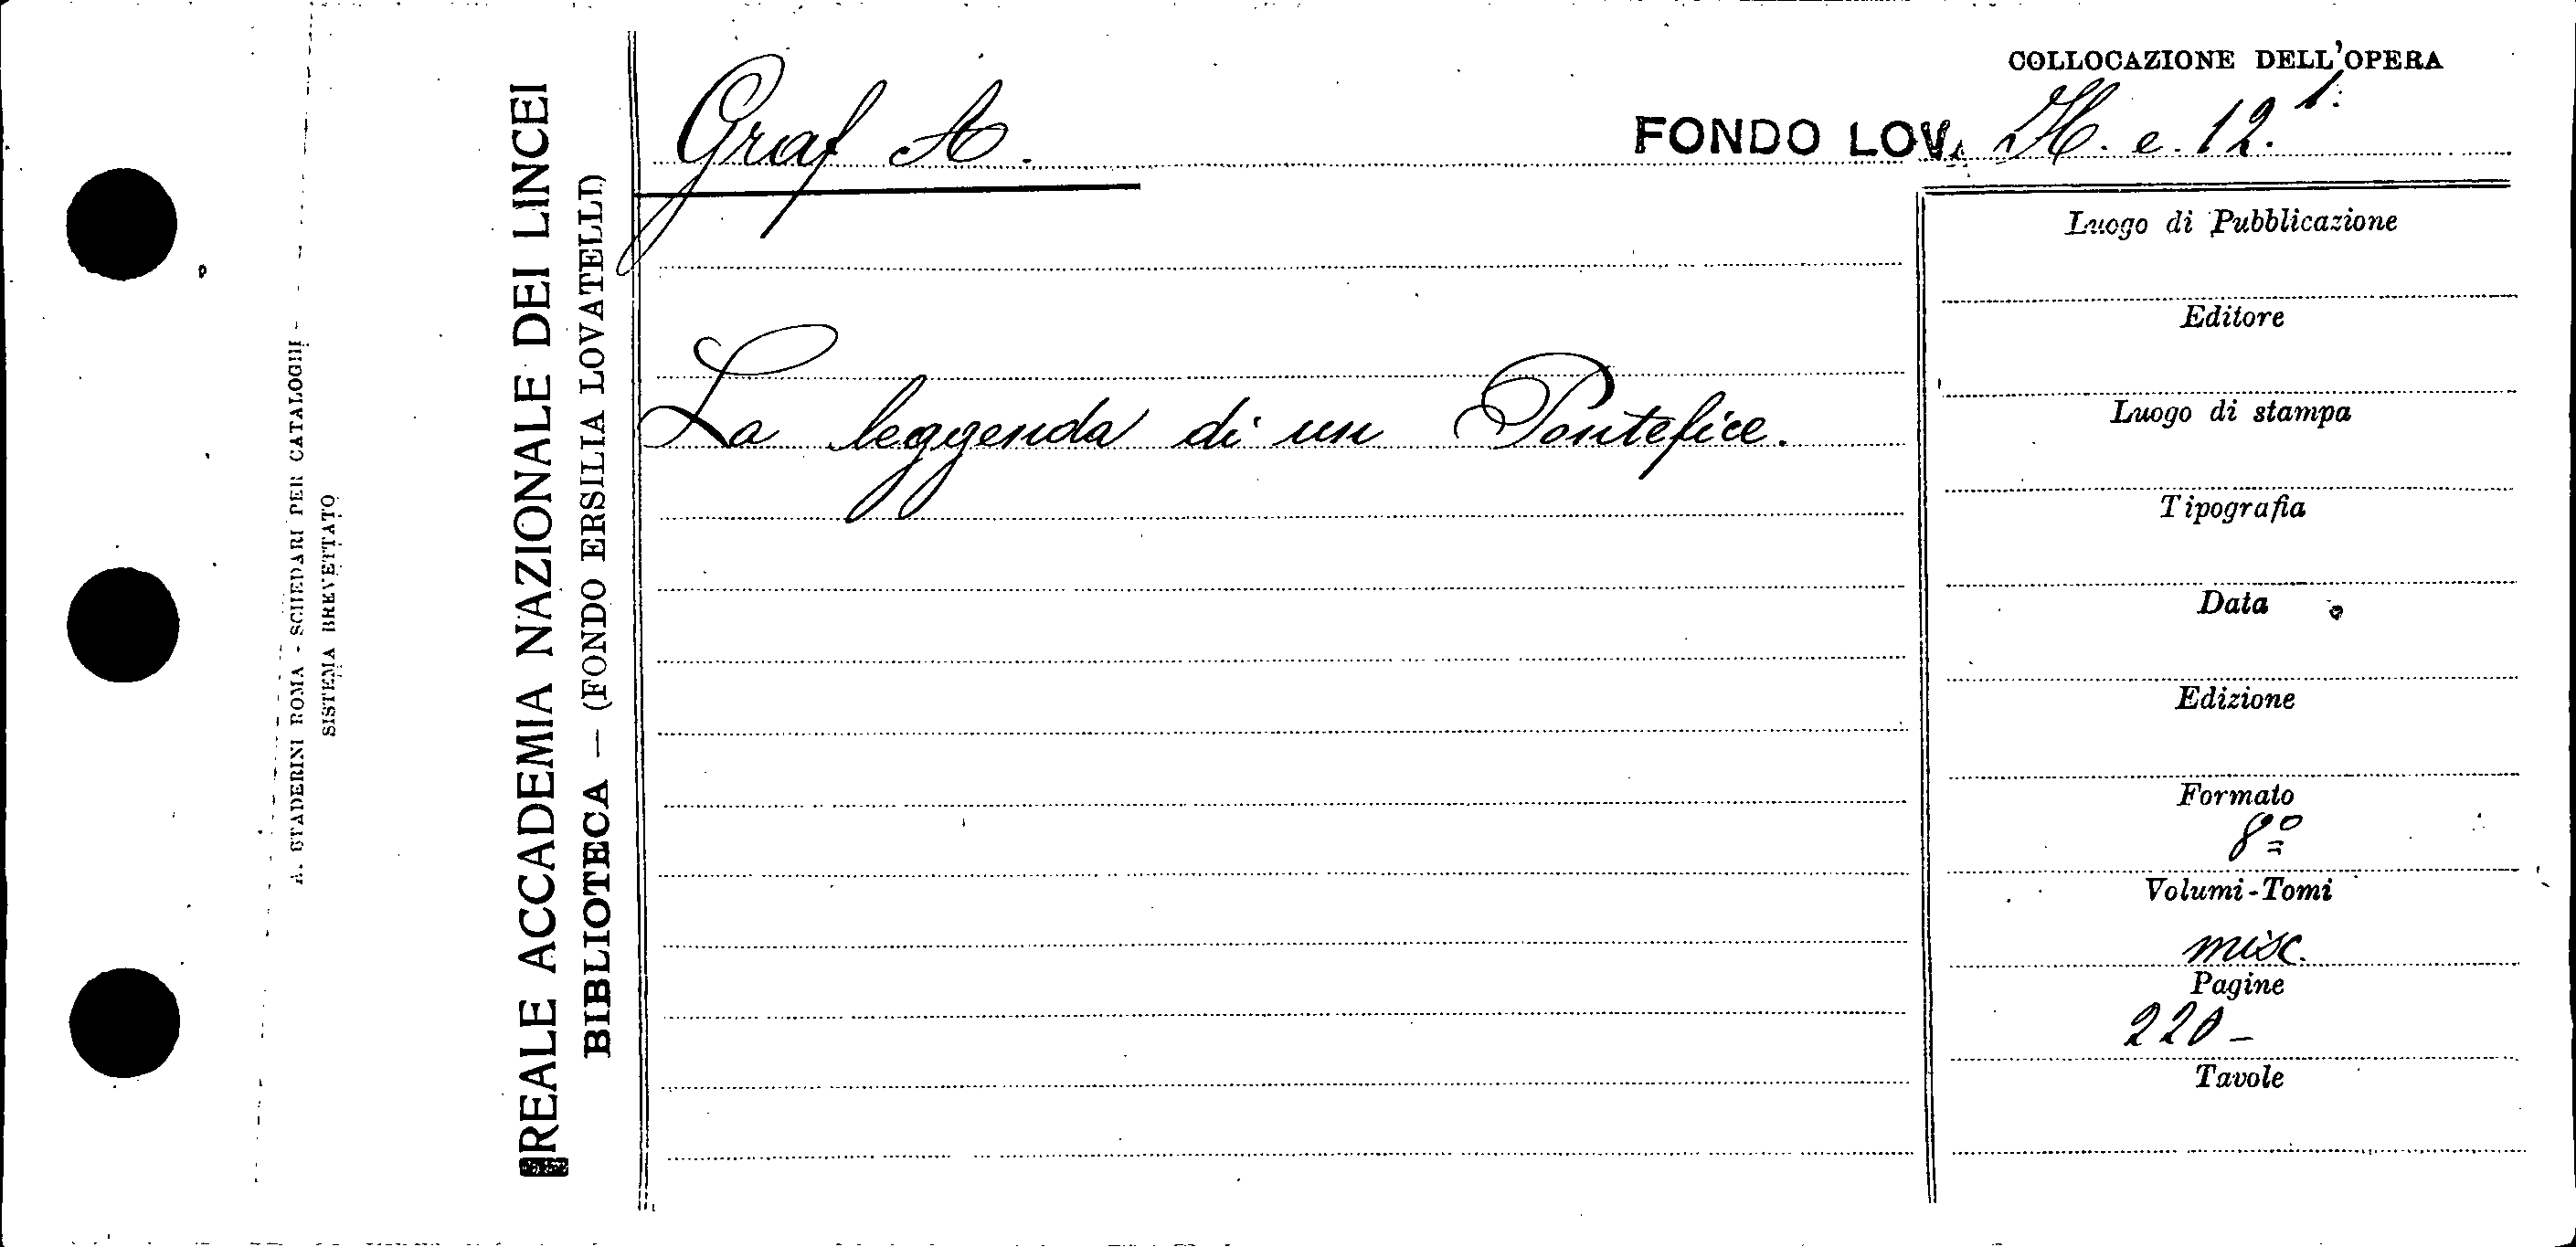 A. STADERINI ROMA - SCHEDARI PER CATALOGHI
SISTEMA BREVETTATO
REALE ACCADEMIA NAZIONALE DEI LINCEI
BIBLIOTECA — (FONDO ERSILIA LOVATELLI)
COLLOCAZIONE DELL'OPERA
Graf A.
FONDO LOV. H. e. 12. 1.
La leggenda di un Pontefice.
Luogo di Pubblicazione
Editore
Luogo di stampa
Tipografia
Data
Edizione
Formato
8º
Volumi-Tomi
misc.
Pagine
220 -
Tavole